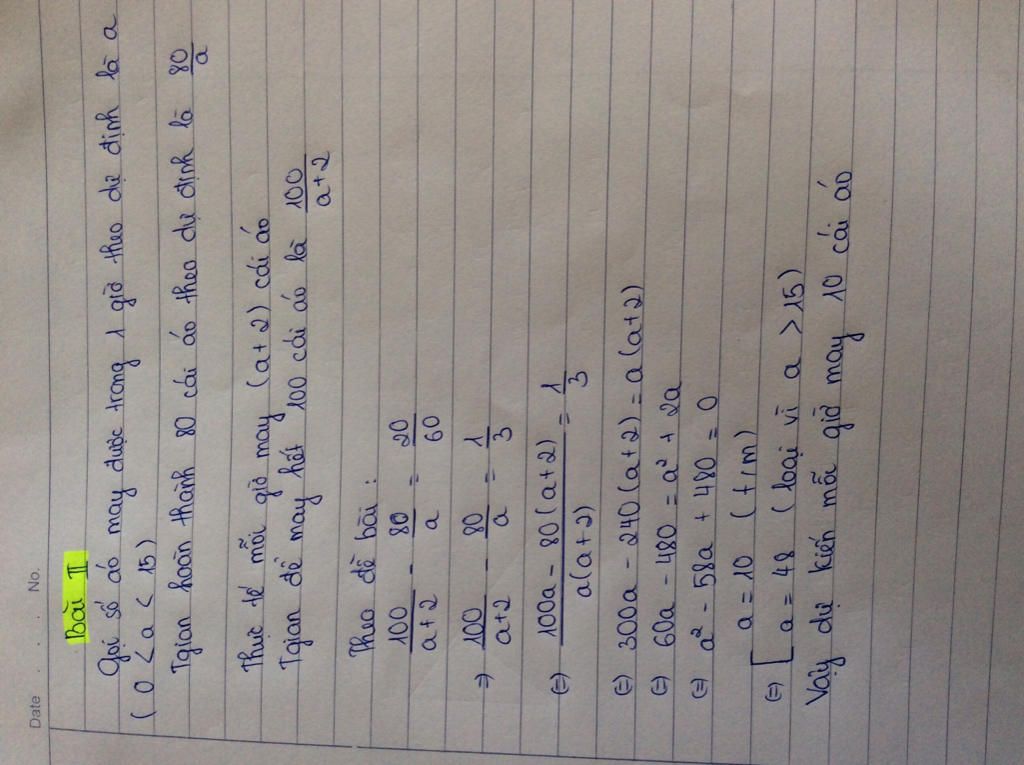 Date . . . . No.
Bài II
Gọi số áo may được trong 1 giờ theo dự định là a
( 0 < a < 15 )
Tgian hoàn thành 80 cái áo theo dự định là 80/a
Thực tế mỗi giờ may (a+2) cái áo
Tgian để may hết 100 cái áo là 100/(a+2)
Theo đề bài :
100/(a+2) - 80/a = 20/60
⇒ 100/(a+2) - 80/a = 1/3
(=) (100a - 80(a+2))/(a(a+2)) = 1/3
(=) 300a - 240(a+2) = a(a+2)
(=) 60a - 480 = a² + 2a
(=) a² - 58a + 480 = 0
(=) [ a = 10 (t/m)
a = 48 (loại vì a > 15)
Vậy dự kiến mỗi giờ may 10 cái áo